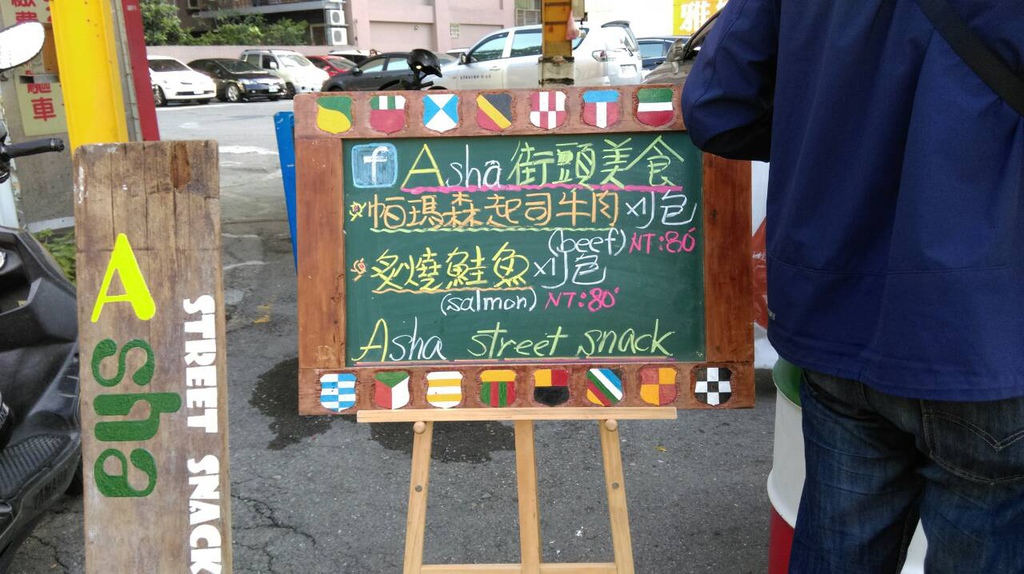 f Asha 街頭美食
帕瑪森起司牛肉刈包
(beef) NT:80
炙燒鮭魚刈包
(salmon) NT:80
Asha street snack
Asha
STREET SNACK
驅車